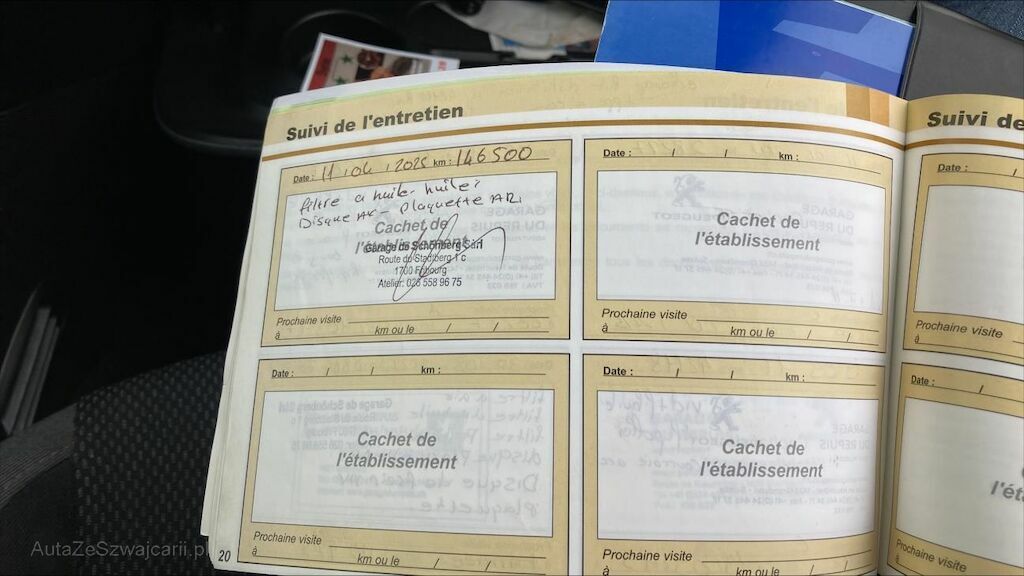 Suivi de l'entretien
Date : 11 / 04 / 2025 km : 146500
filtre a huile - huile
Disque AR - Plaquette AR
Cachet de
l'établissement
Garage de Schönberg Sàrl
Route du Stadtberg 1 c
1700 Fribourg
Atelier: 026 558 96 75
Prochaine visite
à km ou le / /
Date : / / km :
Cachet de
l'établissement
Prochaine visite
à km ou le / /
Date : / / km :
Cachet de
l'établissement
Prochaine visite
à km ou le / /
Date : / / km :
Cachet de
l'établissement
Prochaine visite
à km ou le / /
20
Suivi de
Date : /
Prochaine visite
à
Date : /
Prochaine visite
à
AutaZeSzwajcarii.pl